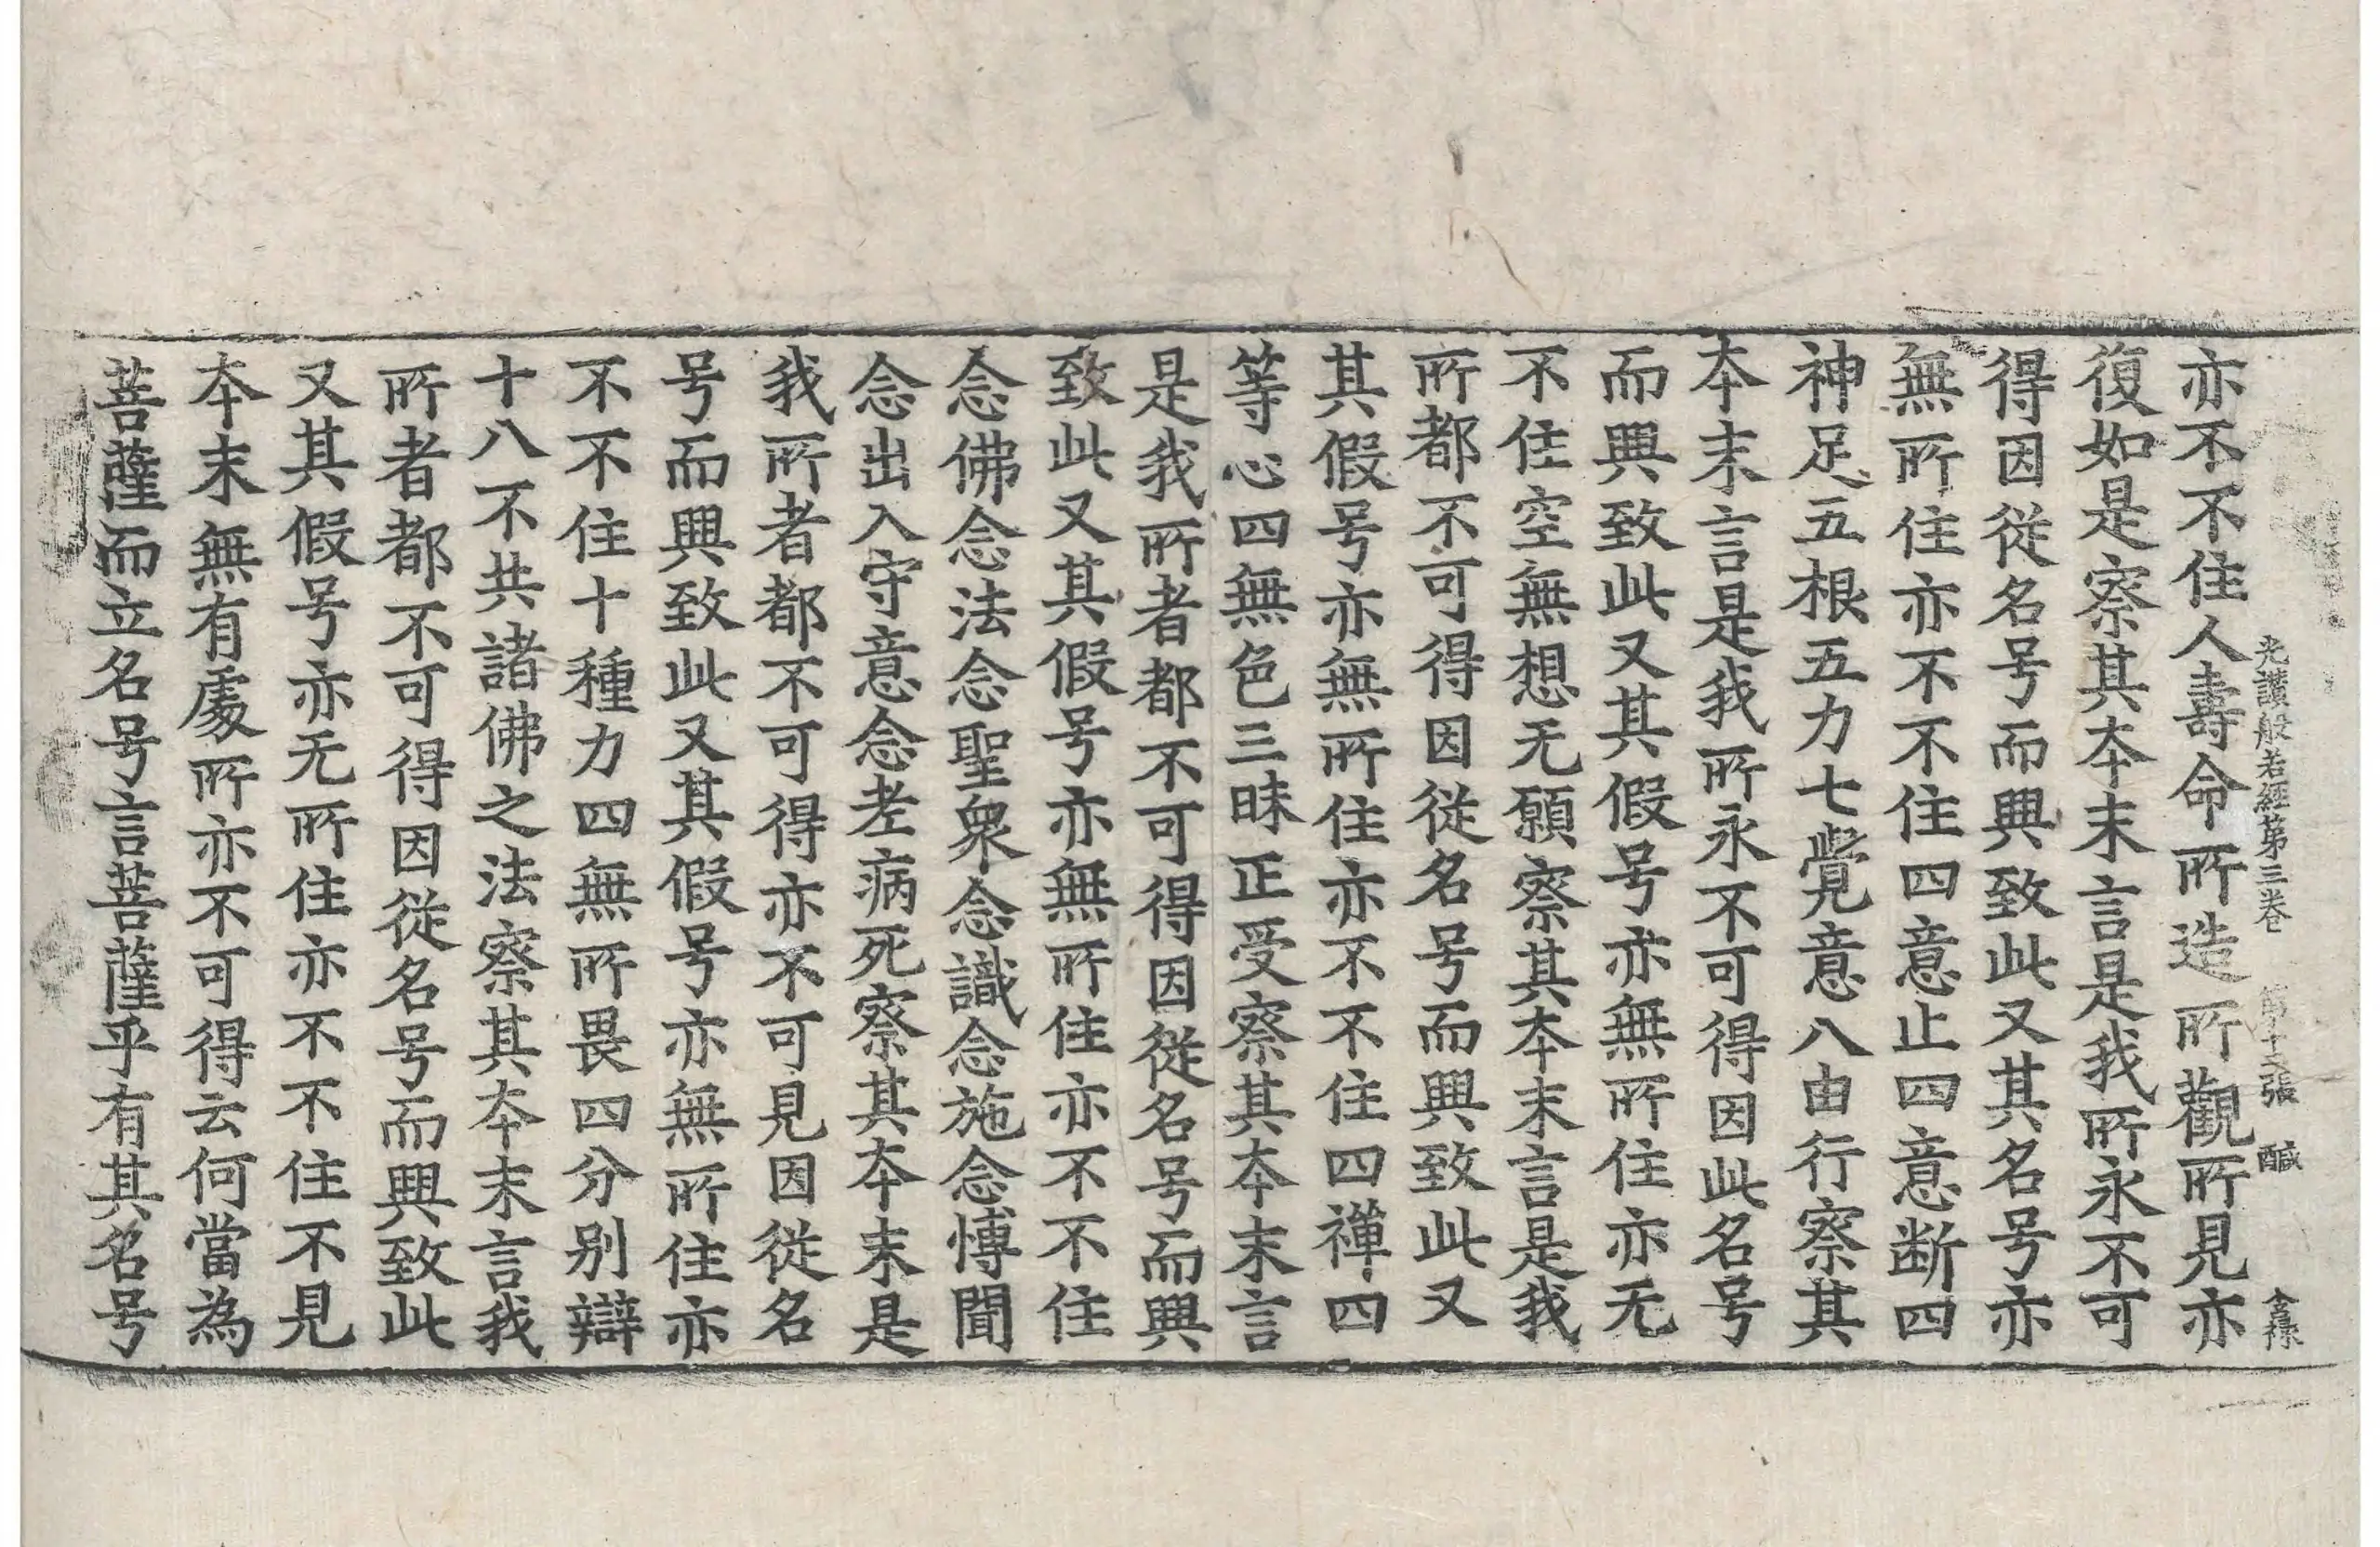 光讃般若經第三卷 第十二張 醎 金祿
亦不不住人壽命所造所觀所見亦
復如是察其本末言是我所永不可
得因從名号而興致此又其名号亦
無所住亦不不住四意止四意断四
神足五根五力七覺意八由行察其
本末言是我所永不可得因此名号
而興致此又其假号亦無所住亦无
不住空無想无願察其本末言是我
所都不可得因從名号而興致此又
其假号亦無所住亦不不住四禪四
等心四無色三昧正受察其本末言
是我所者都不可得因從名号而興
致此又其假号亦無所住亦不不住
念佛念法念聖衆念識念施念愽聞
念出入守意念老病死察其本末是
我所者都不可得亦不可見因從名
号而興致此又其假号亦無所住亦
不不住十種力四無所畏四分别辯
十八不共諸佛之法察其本末言我
所者都不可得因從名号而興致此
又其假号亦无所住亦不不住不見
本末無有處所亦不可得云何當為
菩薩而立名号言菩薩乎有其名号